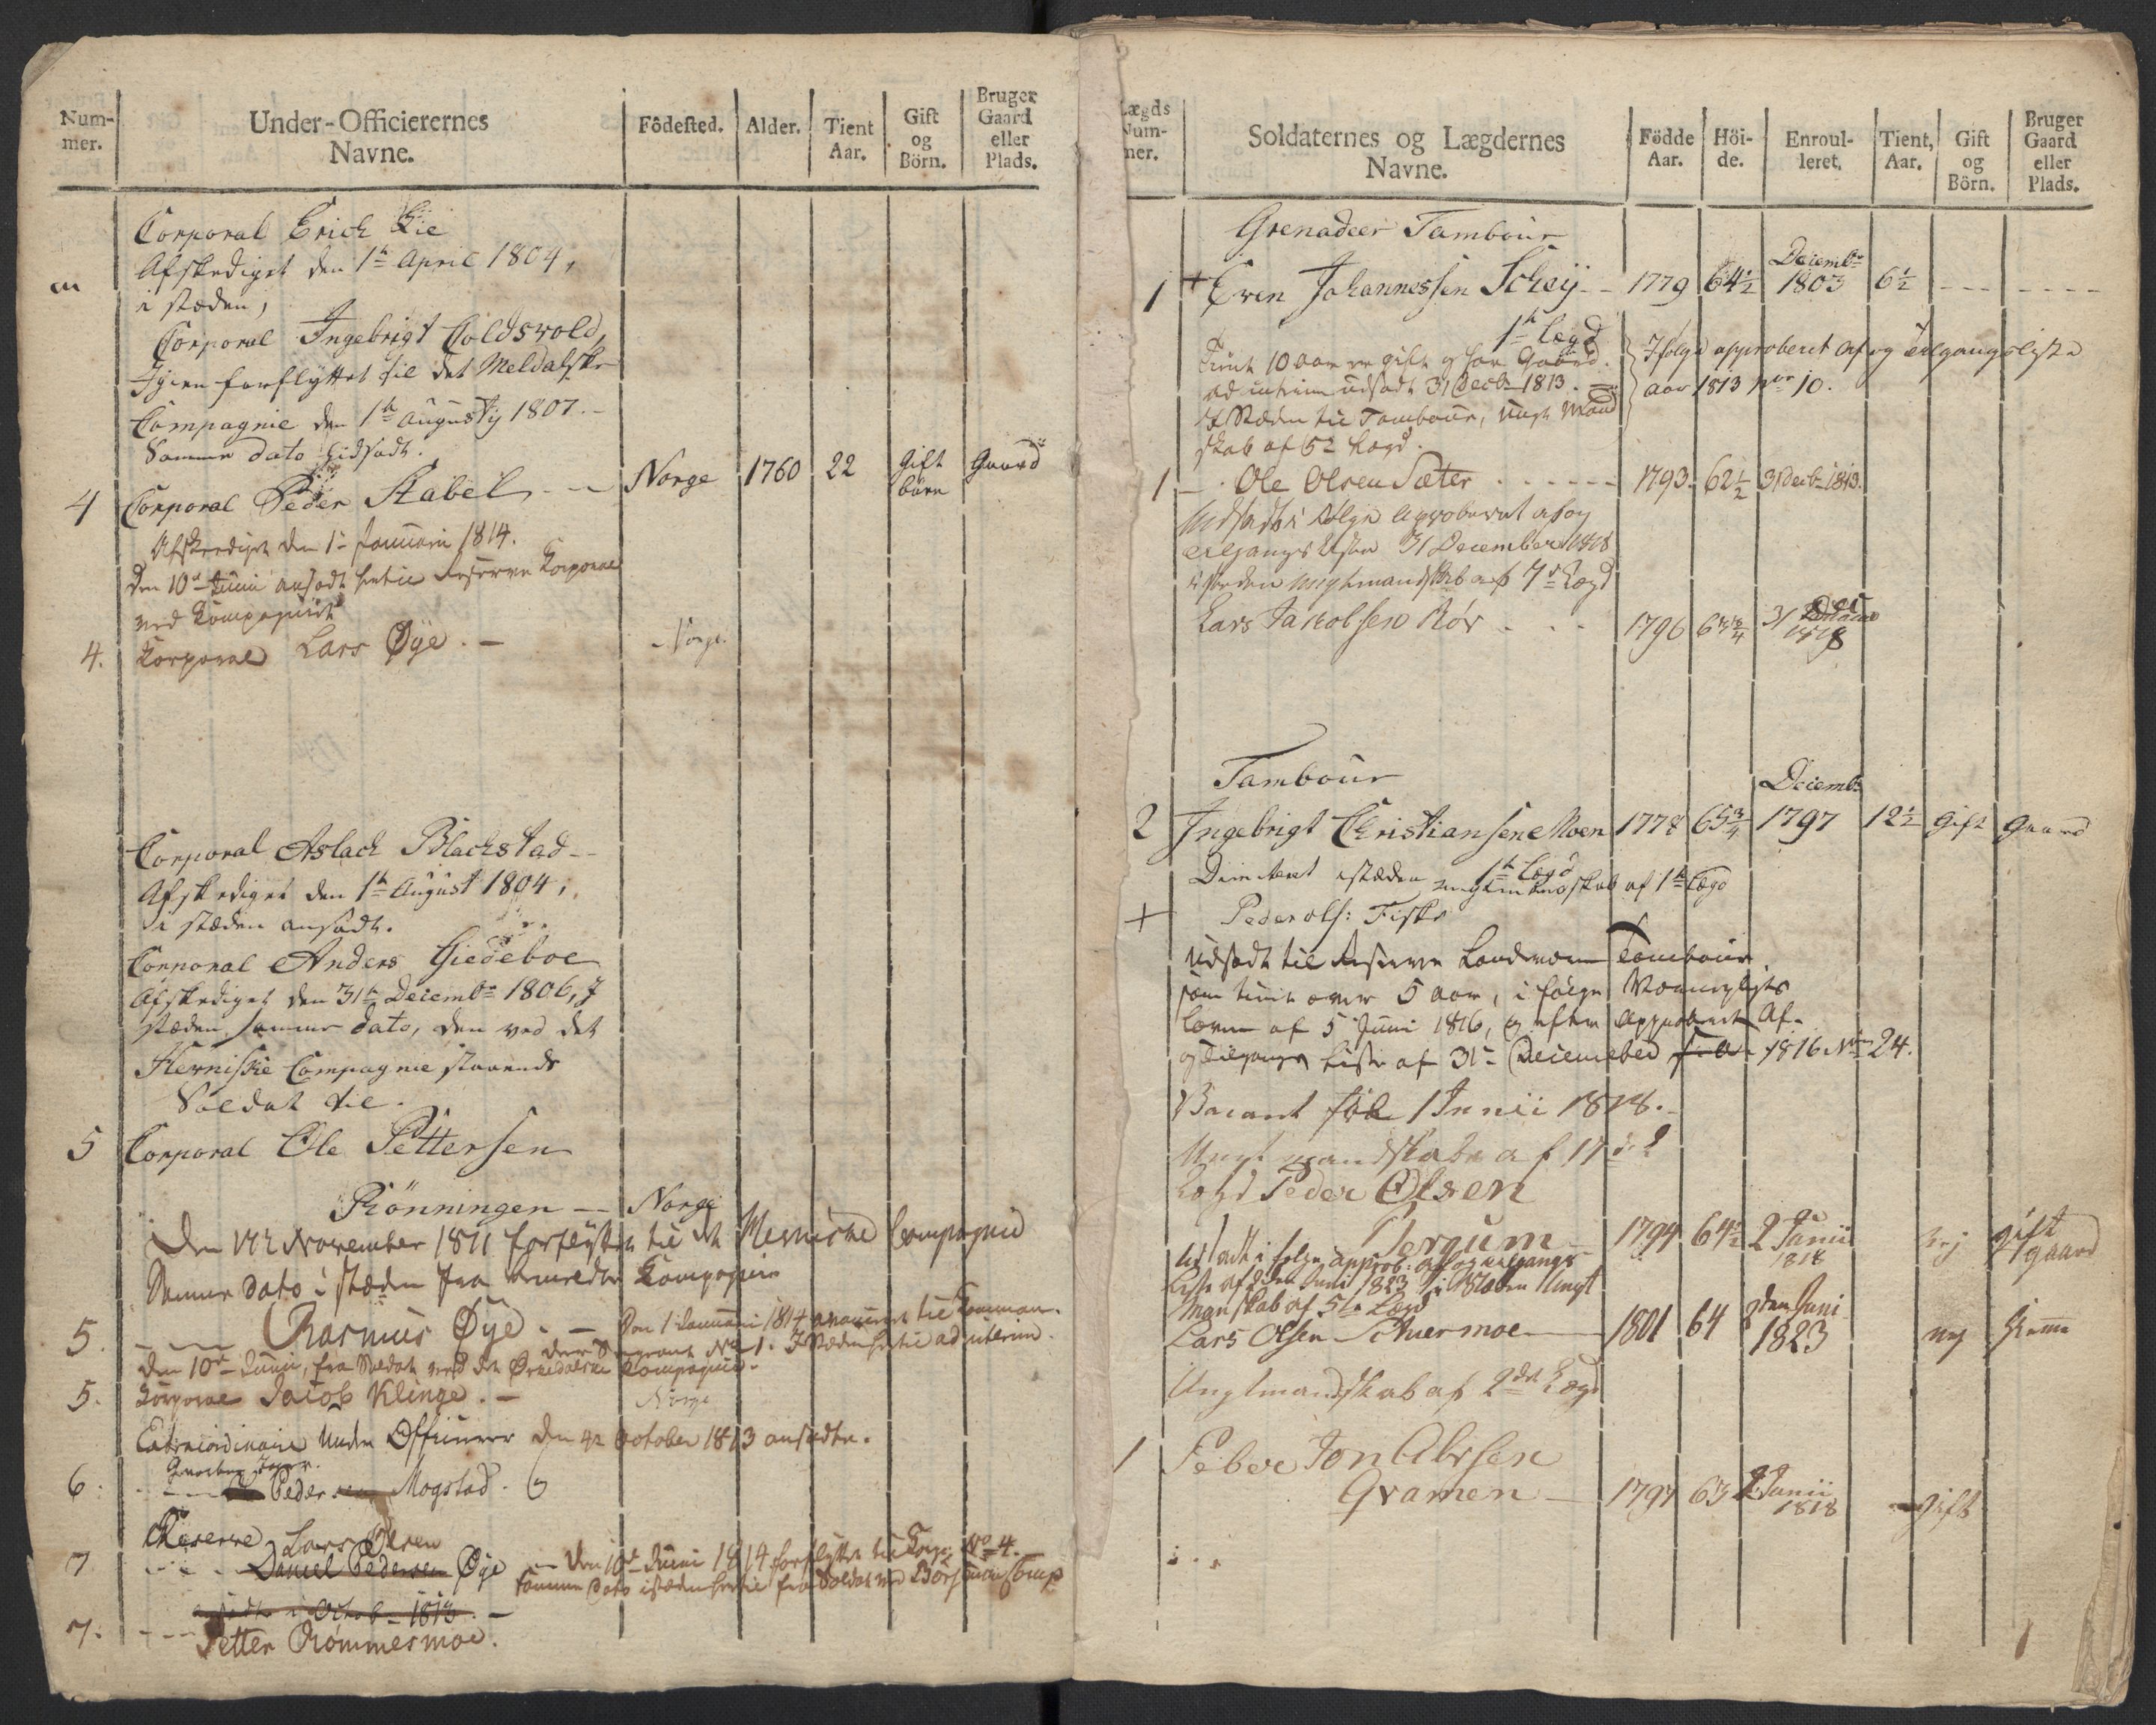 Num-
mer.
Under-Officierernes
Navne.
Födested.
Alder.
Tient
Aar.
Gift
og
Börn.
Bruger
Gaard
eller
Plads.
Corporal Erich Lie
Afskediget den 1te April 1804,
i stæden,
Corporal Ingebrigt Coldsvold,
Igien forflyttet til det Meldalske
Compagnie den 1te Augusty 1807.
Samme dato hidsadt.
4 Corporal Peder Stabel -- Norge 1760 22 Gift börn Gaard
Afskediget den 1te Januarii 1814.
Den 10de Junii ansadt hertil Reserve Korporal
ved Kompagniet
4. Korporal Lars Øye. - Norge.
Corporal Aslach Blachstad --
Afskediget den 1te August 1804,
i stæden ansadt.
Corporal Anders Giedeboe
Afskediget den 31te Decembr 1806, I
stæden samme dato, den ved det
Hevniske Compagnie staaende
Soldat til.
5 Corporal Ole Pettersen
Rönningen -- Norge
Den November 1811 forflyttet til det Hevniske Compagnie
Samme Dato i stæden fra Kompagnie
5. Rasmus Øye. - Den 1 Januarii 1814 avanceret til Comman-
deer Sergeant No 1. I Stæden hertil ad interim.
Den 10de Junii, fra Soldat ved det Ørkedalske Kompagnie.
5. Korporal Jacob Klinge. - Norge
Extraordinaire Under Officierer den 4de October 1813 ansadte.
6. Peder Mogstad.
Reserve Lars Olsen
7 Daniel Pedersen Øye - Den 10de Junii 1814 forflyttet til Korp: No 4.
Samme Dato istæden hertil fra Soldat ved Börs Comp
ansadt i Octob - 1813. -
7. Petter Rommesmoe.
Lægds
Num-
mer.
Soldaternes og Lægdernes
Navne.
Födde
Aar.
Höi-
de.
Enroul-
leret.
Tient,
Aar.
Gift
og
Börn.
Bruger
Gaard
eller
Plads.
Grenadeer Tambour
1 + Even Johannessen Schey -- 1779 64½ Decembr 1803 6½ --- ----
1te Lægd
Tient 10 aar er gift og har Gaard.
ad interim udsadt 31 Decbr 1813. -
I Stæden til Tambour, ungt Mand
skab af 5te Lægd.
Ifölge approberet Af og tilgangsliste
aar 1813 No 10.
1 - Ole Olsen Sæter ------ 1793. 62½ 31 Decbr 1813.
Udsadt i Fölge Approberet af og
tilgangs Listen 31 December 1818
i stæden ungtmandskab af 7de Lægd
Lars Jakobsen Rör - - - 1796 63¾ 31 Decbr 1818
Tambour
2 Ingebrigt Christiansen Moen 1778 65¾ Decembr 1797 12½ Gift Gaard
1te Lægd
Dimiteret istæden ungtmandskab af 1te Lægd
+ Peder Ols: Fiske
Udsadt til Reserve Landværn Tambour.
som tient over 5 aar, i fölge Værnepligts
loven af 5 Juni 1816, og efter Approberet Af-
og tilgangs liste af 31te December 1816 No 24.
Vacant til 1 Junii 1818.
Ungt mandskabe af 17de
Lægd Peder Olsen
Tergum 1794 64½ 2de Junii 1818 Nej gift gaard
Udsadt i fölge approb: af og tilgangs
Liste af 2den Juni 1823 i Stæden Ungt
Manskab af 5te Lægd
Lars Olsen Stuermoe 1801 64 2den Juni 1823 nej hiemme
Ungtmandskab af 2det Lægd
1 Peber Jon Albrsen
Gramen - 1797 63 2 Junii 1818 Gift